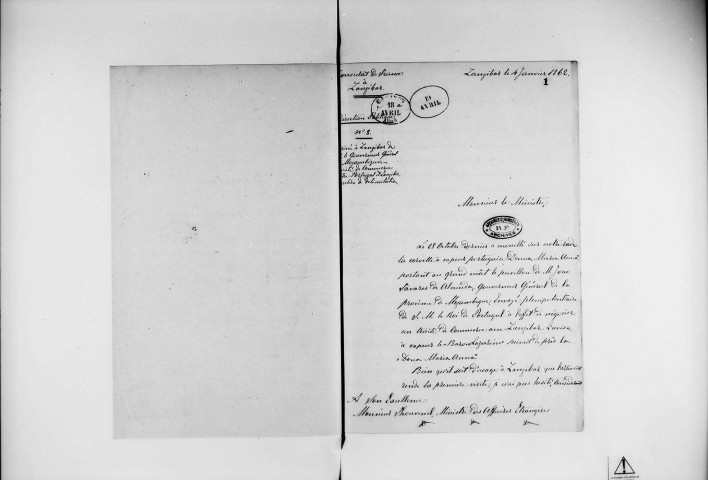 Consulat de France
à
Zanzibar.
Zanzibar le 4 Janvier 1862.
1
18
AVRIL
19
AVRIL
Direction Politique
N° 8.
Arrivée à Zanzibar de
le Gouverneur Général
Mozambique
traité de Commerce
Portugal Zanzibar
question de délimitation
Monsieur le Ministre,
R F
ARCHIVES
Le 28 Octobre dernier a mouillé sur notre rade
la corvette à vapeur portugaise Dona Maria Anna
portant au grand mât le pavillon de M. Joao
Tavares de Almeida, Gouverneur Général de la
province de Mozambique, Envoyé plénipotentiaire
de S. M. le Roi de Portugal à l'effet de négocier
un traité de Commerce avec Zanzibar. L'aviso
à vapeur le Baron Lazarim suivait de près la
Dona Maria Anna
Bien qu'il soit d'usage à Zanzibar que
rende la première visite, je n'ai pas hésité,
A Son Excellence
Monsieur Thouvenel, Ministre des Affaires Etrangères